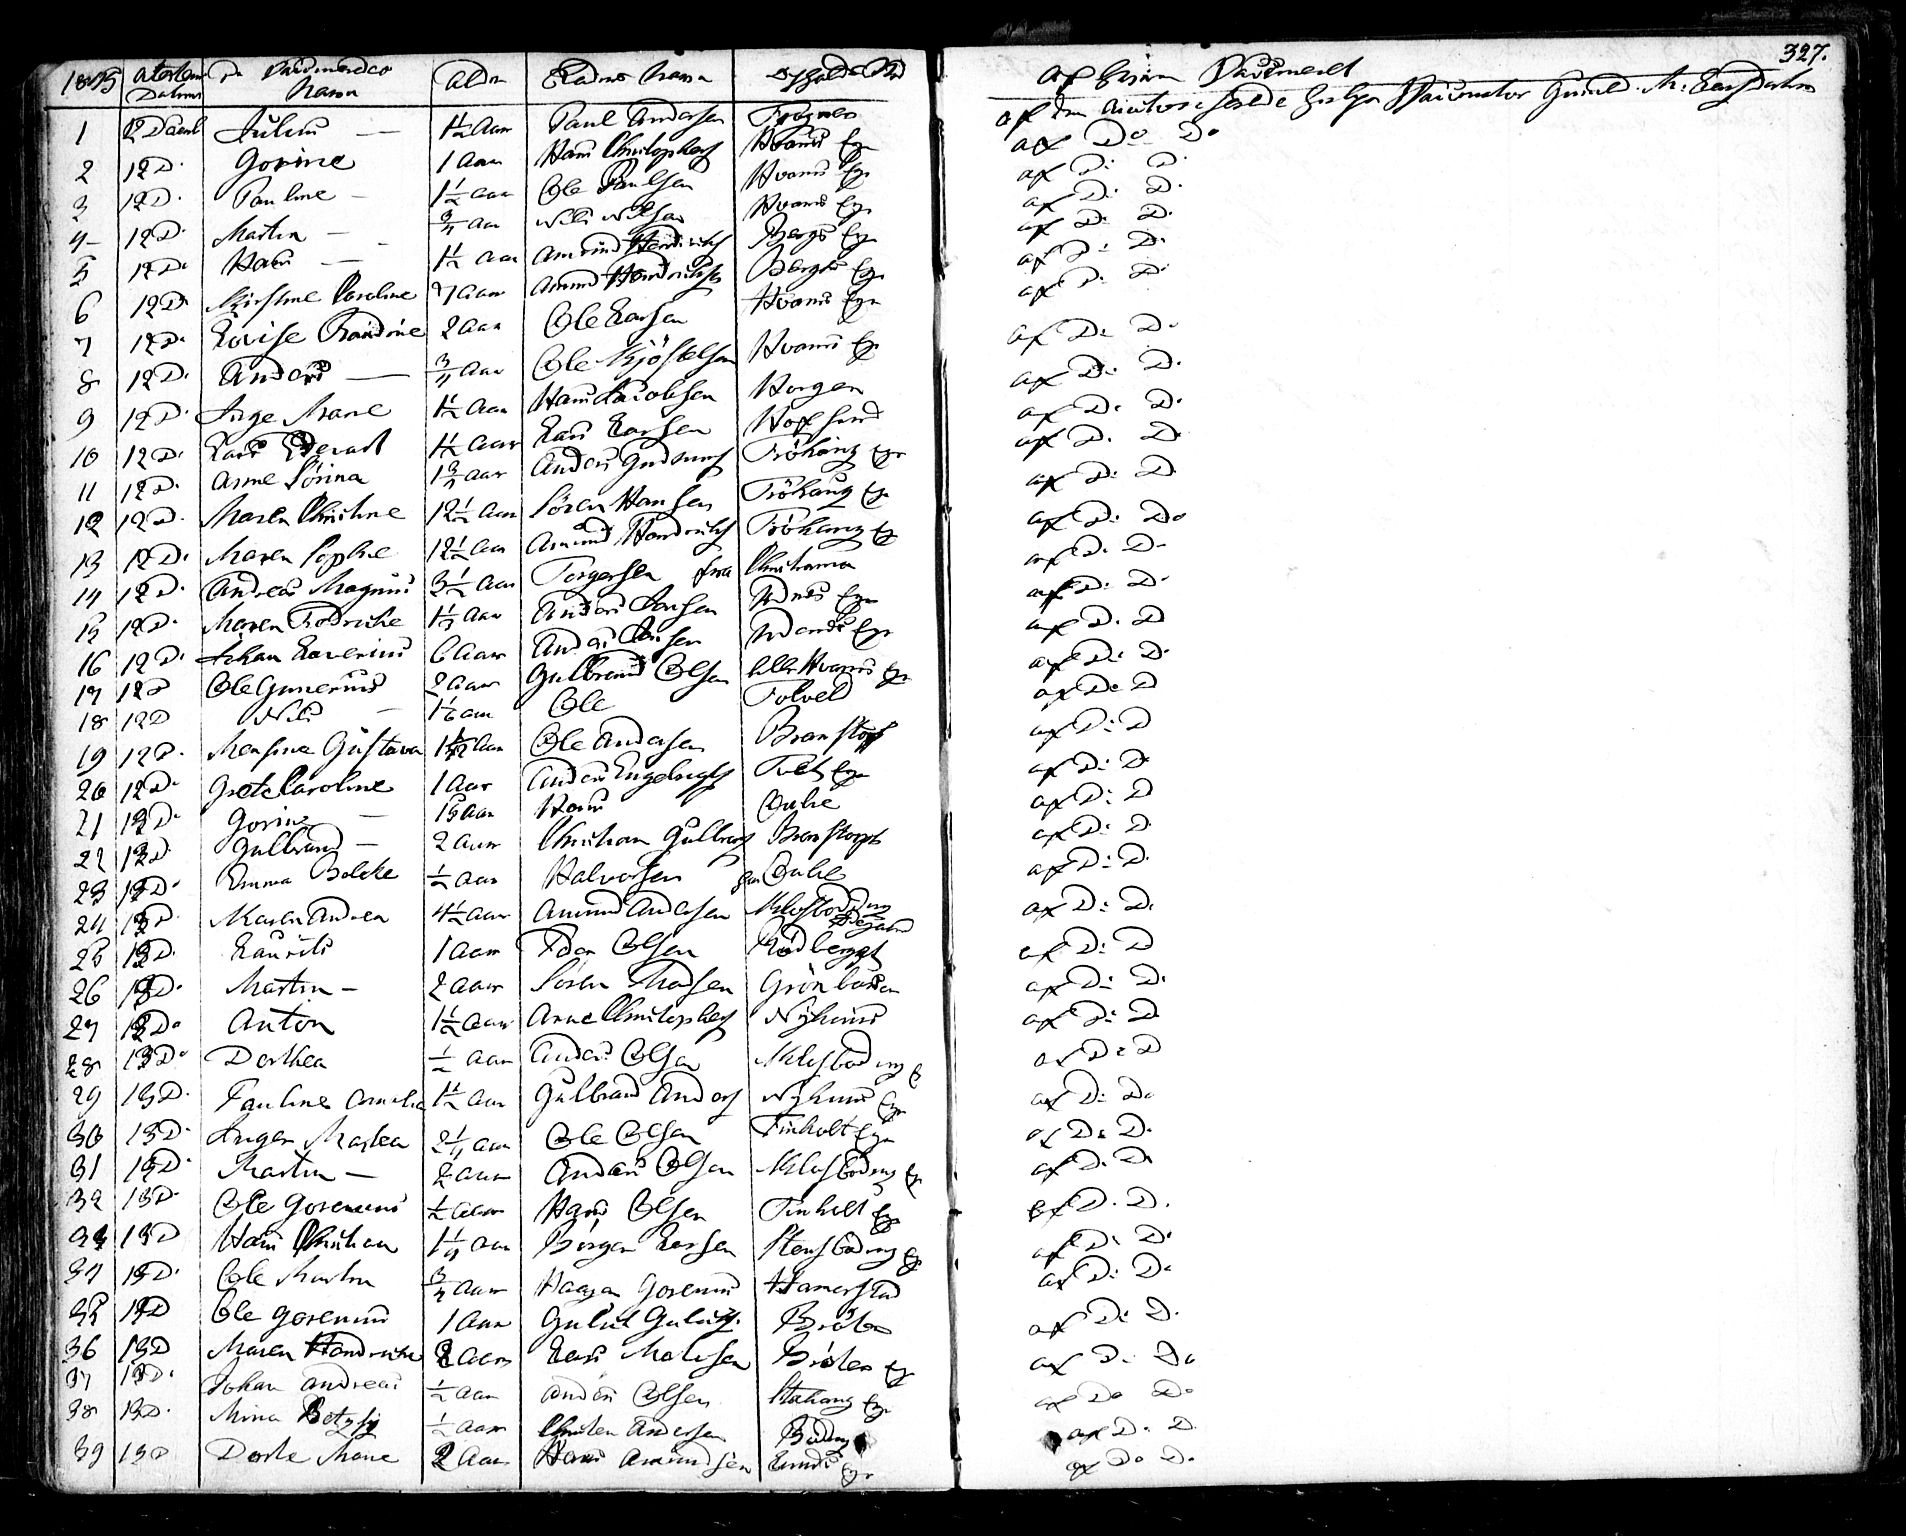 327.
1875 Attestens Datum De Vaccineredes Navn Alder Fadrens Navn Opholds Sted Af hvem Vaccineret
1 12 Decemb Julius — 1½ Aar Paul Andersen Frogner af den autoriserede Hjelpe Vaccinator Gunild M. Larsdatter
2 12 D. Gorine 1 Aar Hans Christophers Hvams Eje af Do Do
3 12 D. Pauline — 1½ aar Ole Paulsen Hvams Eje af D. D.
4 12 D. Martin — ¾ aar Nils Nilsen Hvams Eje af D. D.
5 12 D. Hans — 1½ aar Amund Hendrichs Bergs Eje af D. D.
6 12 D. Kirstine Caroline 7 aar Amund Hendrichsen Bergs Eje af D. D.
7 12 D. Lovise Randine 2 aar Ole Larsen Hvams Eje af D. D.
8 12 D. Anders — ¾ aar Ole Kjöstelsen Hvams Eje af D. D.
9 12 D. Inge Marie 1½ Aar Hans Jacobsen Horgen af D. D.
10 12 D. Lars Edevart 1½ aar Lars Larsen Hofsrud af D. D.
11 12 D. Anne Sörina 1¾ aar Anders Gudmunds Fröhaug Eje af D. D.
12 12 D. Maren Christine 12½ aar Sören Hansen Fröhaug Eje af D. D.
13 12 D. Maren Sophie 12½ aar Amund Hendrichs Fröhaug Eje af D. Do
14 12 D. Andreas Magnus 3½ aar Torgersen fra Christiania af D. D.
15 12 D. Maren Fredrikke 1½ aar Anders Jensen Eje af D. D.
16 12 D. Johan Laverius 6 aar Anders Eje af D. D.
17 12 D Ole Gunerius 2 aar Gulbrand Olsen Lille Hvams Eje af D. D.
18 12 D Nils — 1⅙ aar Ole Tolvel af D. D
19 12 D. Mensine Gustava aar Ole Andersen Branstorp af D. D
20 12 D. Grete Caroline 1 Aar Anders Engebregts Tvet Eje af D. D
21 12 D. Gorine — 15 aar Hans Aulie af D. D
22 12 D. Gulbrand — 2 aar Christian Gulbrands Branstorp af D. D.
23 12 D. Emma Bolette ½ aar Halvorsen fra Aulie af D. D.
24 13 D. Maren Andrea 4½ aar Amund Andersen Klosböding Ødegaard af D. D.
25 13 D. Laurits 1 aar Peder Olsen Rödberget af D. D
26 13 D. Martin — 2 aar Sören Madsen Grönbakken af D. D.
27 13 D. Anton 1½ aar Arne Christophers Nyhuus af D. D
28 13 D. Dorthea ½ aar Anders Olsen Klosböding E af D. D
29 13 D. Pauline Amalia 1½ aar Gulbrand Anders Nyhuus Eje af D. D.
30 13 D. Inger Marthea 2¼ aar Ole Olsen Finholt Eje af D. D.
31 13 D. Martin — 2 aar Anders Olsen Klosböding Eje af D. D.
32 13 D. Ole Gorenius ½ aar Hans Olsen Finholt Eje af D. D.
33 13 D Hans Christian 1¼ aar Börger Larsen Stensböding Eje af D. D.
34 13 D. Ole Martin ¾ aar Haagen Gorenius Hamerstad af D. D.
35 13 D Ole Gorenius 1 aar Gulik Guliks. Bröten af D. D.
36 13 D Maren Hendrikke 2 aar Lars Melesen Bröten Eje af D. Do
37 13 D. Johan Andreas ½ aar Anders Olsen Eje af Do Do
38 13 D. Mina Betzy ½ aar Christen Andersen Böding af D. D.
39 13 D Dorte Marie 2 aar Hans Amundsen Lunds Eje af D. D.